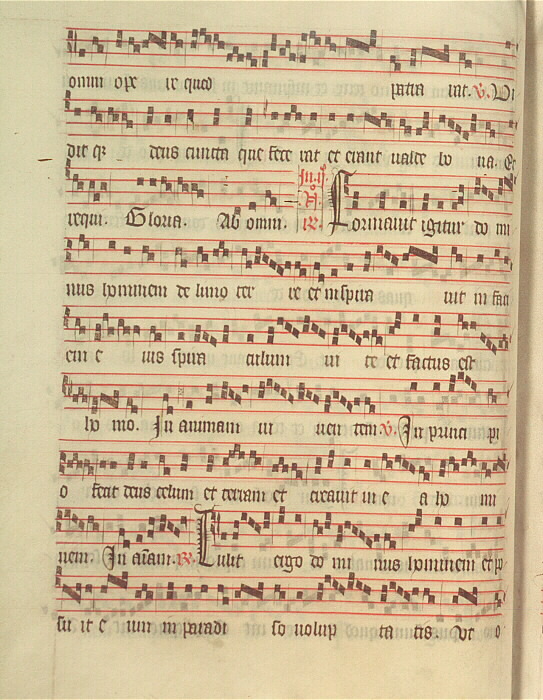 omni ope re quod patra rat. V. Vi
dit q deus cuncta que fece rat et erant valde bo na. Et
requi. Gloria. Ab omni. R. Formavit igitur do mi
nus hominem de limo ter re et inspira vit in faci
em e ius spira culum vi te et factus est
ho mo. In animam vi ven tem. V. In princi pi
o fecit deus celum et terram et creavit in e a ho mi
nem. In aiam. R. Tulit ergo do mi nus hominem et po
su it e um in paradi so volup ta tis. Vt o